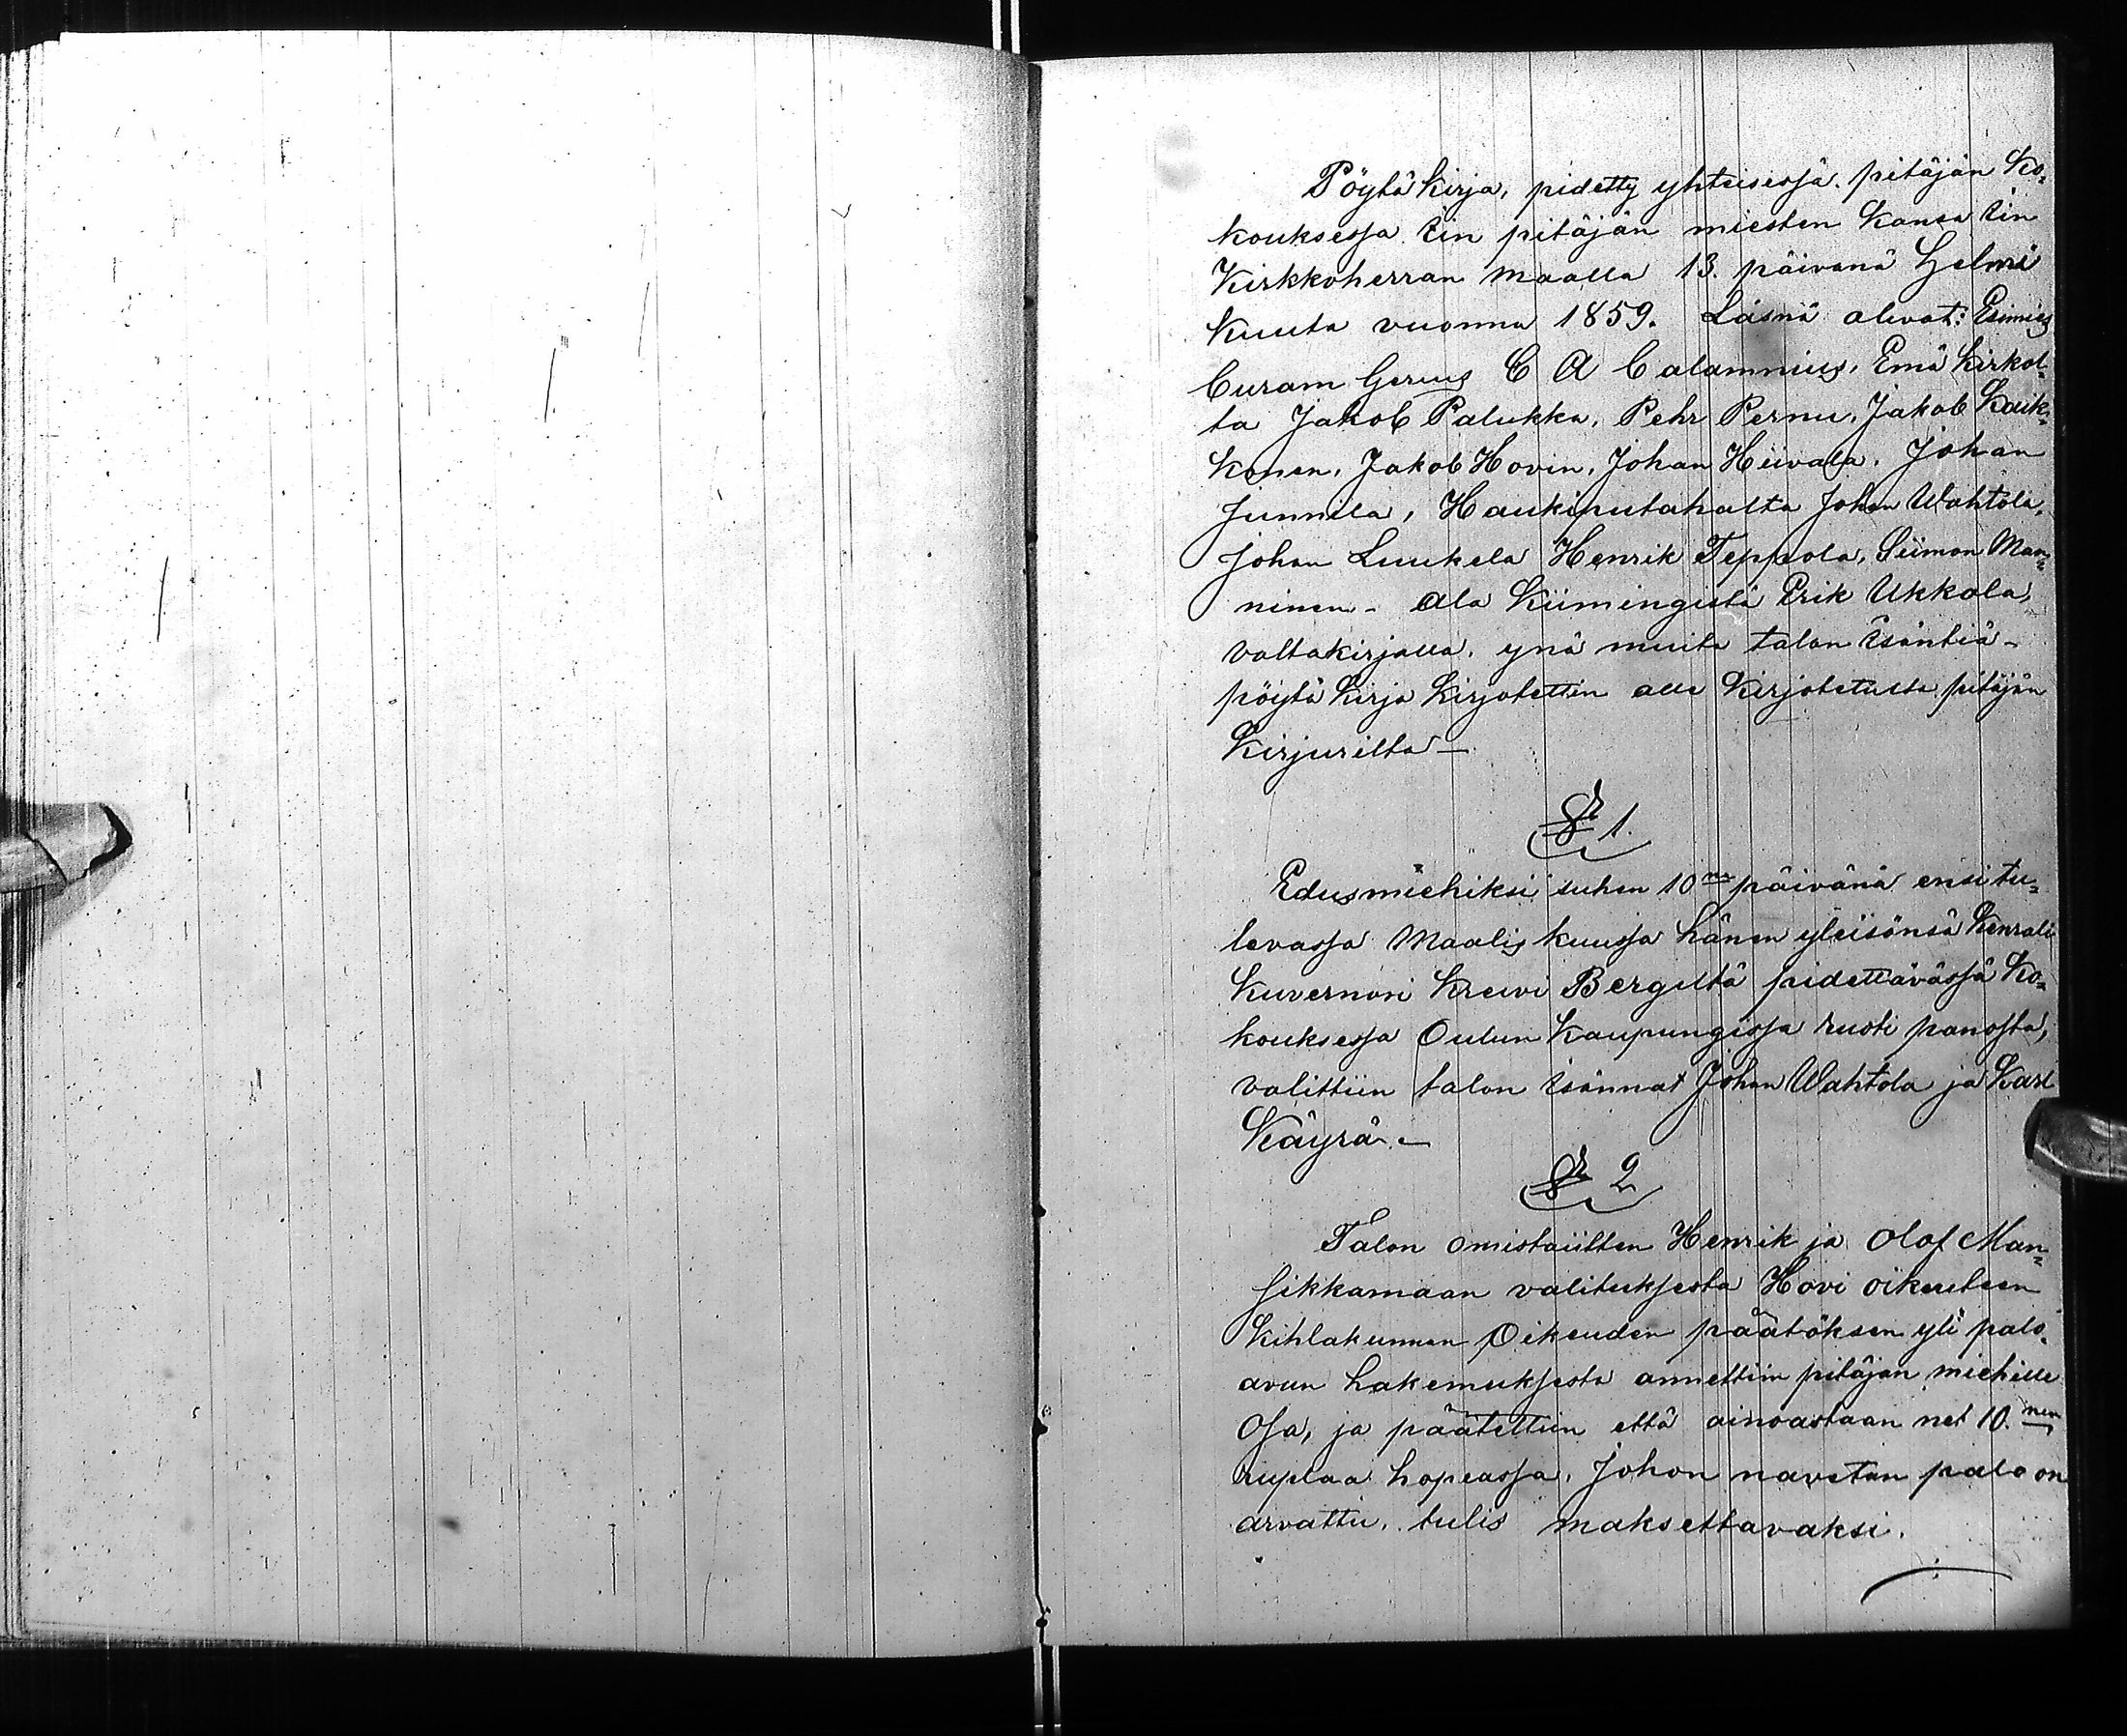 Pöytä kirja, pidetty yhteisessä pitäjän Ko-
kouksessa Iin pitäjän miesten kansa Iin
Kirkkoherran maalla 13. päivänä Helmi
Kuuta vuonna 1859. Läsnä olivat: Esimies
Curam Gerens C A Calamnius, Emä Kirkol-
ta Jakob Palukka, Pehr Pernu, Jakob Kaik-
konen, Jakob Hovin, Johan Hiivala, Johan
Junnila, Haukiputahalta Johan Wahtola,
Johan Luukela Henrik Teppola, Siimon Man-
ninen - Ala Kiimingistä Erik Ukkola,
valtakirjalla, ynä muita talon Isäntiä -
pöytä Kirja Kirjotettiin alle Kirjotetulta pitäjän
Kirjurilta -
§ 1.
Edusmiehiksi siihen 10 päivänä ensi tu-
levassa Maalis kuussa hänen yleisönsä Kenrali
Kuvernöri Kreivi Bergiltä pidettävässä Ko-
kouksessa Oulun Kaupungissa ruoti panosta,
valittiin talon Isännät Johan Wahtola ja Karl
Käyrä. -
§ 2
Talon omistaiitten Henrik ja Olof Man-
sikkamaan valituksesta Hovi oikeuteen
Kihlakunnan Oikeuden päätöksen yli palo-
avun hakemuksesta annettiin pitäjän miehille
Osa, ja päätettiin että ainoastaan net 10. nen
ruplaa hopeassa, johon navetan palo on
arvattu, tulis maksettavaksi.